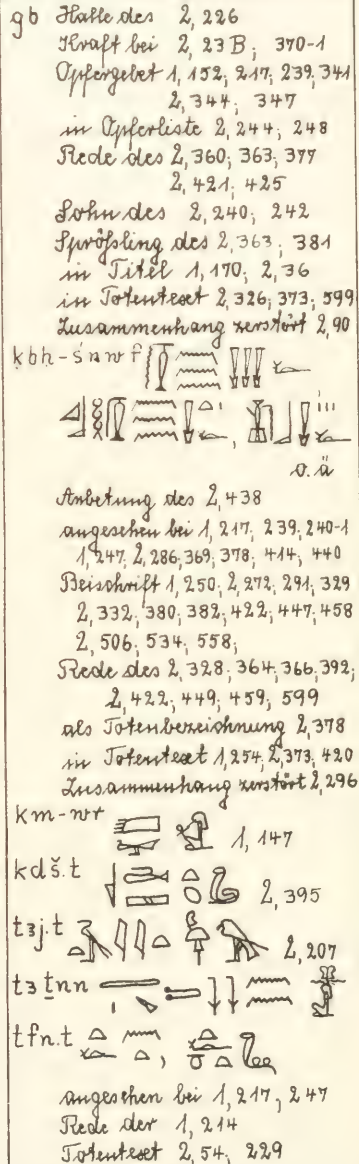 gb Halle des 2, 226
Kraft bei 2, 23 B; 370-1
Opfergebet 1, 152; 217; 239; 341
2, 344; 347
in Opferliste 2, 244; 248
Rede des 2, 360; 363; 377
2, 421; 425
Sohn des 2, 240; 242
Sprößling des 2, 363; 381
in Titel 1, 170; 2, 36
in Totentext 2, 326; 373; 599
Zusammenhang zerstört 2, 90
ḳbḥ-śnwf
o. ä
Anbetung des 2, 438
angesehen bei 1, 217; 239; 240-1
1, 247; 2, 286; 369; 378; 414; 440
Beischrift 1, 250; 2, 272; 291; 329
2, 332; 380; 382; 422; 447; 458
2, 506; 534; 558;
Rede des 2, 328; 364; 366; 392;
2, 422; 449; 459; 599
als Totenbezeichnung 2, 378
in Totentext 1, 254; 2, 373; 420
Zusammenhang zerstört 2, 296
km-wr 1, 147
kdš.t 2, 395
tꜣj.t 2, 207
tꜣ ṯnn
tfn.t
angesehen bei 1, 217; 247
Rede der 1, 214
Totentext 2, 54; 229